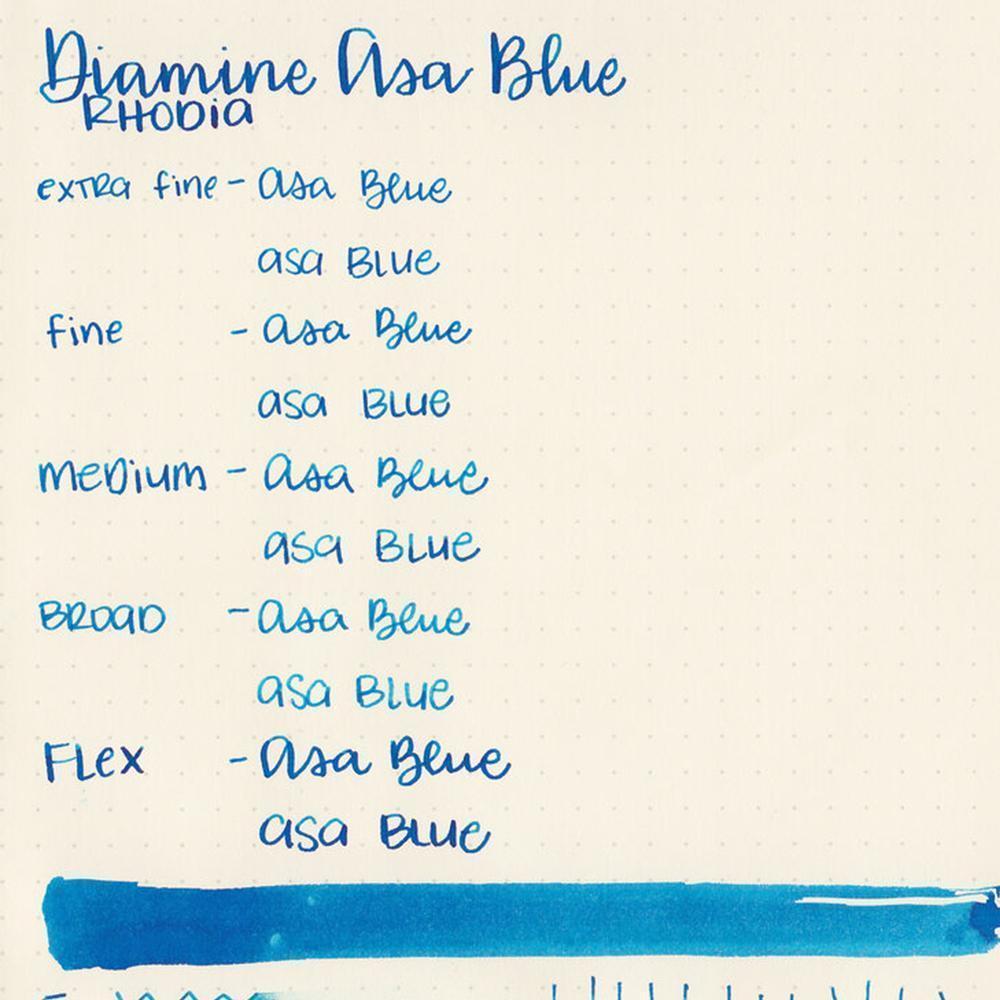 Diamine Asa Blue
RHODia
exTRa fine - asa Blue
asa BLUe
fine - asa Blue
asa BLUe
meDium - asa Blue
asa BLUe
BROAD - asa Blue
asa BLUe
FLex - asa Blue
asa BLUe